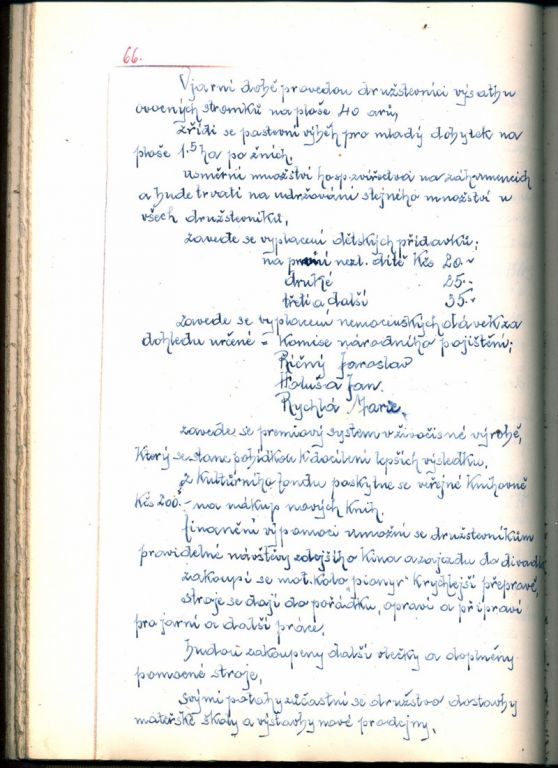 66.
V jarní době provedou družstevníci výsadbu
ovocných stromků na ploše 40 arů,
zřídí se pastevní výběh pro mladý dobytek na
ploše 1.5 ha po žních.
usměrní množství hosp. zvířectva na záhumencích
a bude trvati na udržování stejného množství u
všech družstevníků,
zavede se vyplacení dětských přídavků:
na první nezl. dítě Kčs 20.-
druhé 25.-
třetí a další 35.-
zavede se vyplacení nemocenských dávek za
dohledu určené - Komise národního pojištění;
Říčný Jaroslav
Holuša Jan.
Rychlá Marie.
zavede se premiový system v živočišné výrobě,
který se stane pobídkou k docílení lepších výsledků.
z Kultůrního fondu poskytne se veřejné Knihovně
Kčs 200.- na nákup nových Knih.
finanční výpomocí umožní se družstevníkům
pravidelné návštěvy zdejšího Kina a zájezdu do divadla
zakoupí se mot. Kolo "pionýr" k rychlejší přepravě,
stroje se dají do pořádku, opraví a připraví
pro jarní a další práce.
budou zakoupeny další vlečky a doplněny
pomocné stroje,
svými potahy zúčastní se družstvo dostavby
mateřské školy a výstavby nové prodejny.